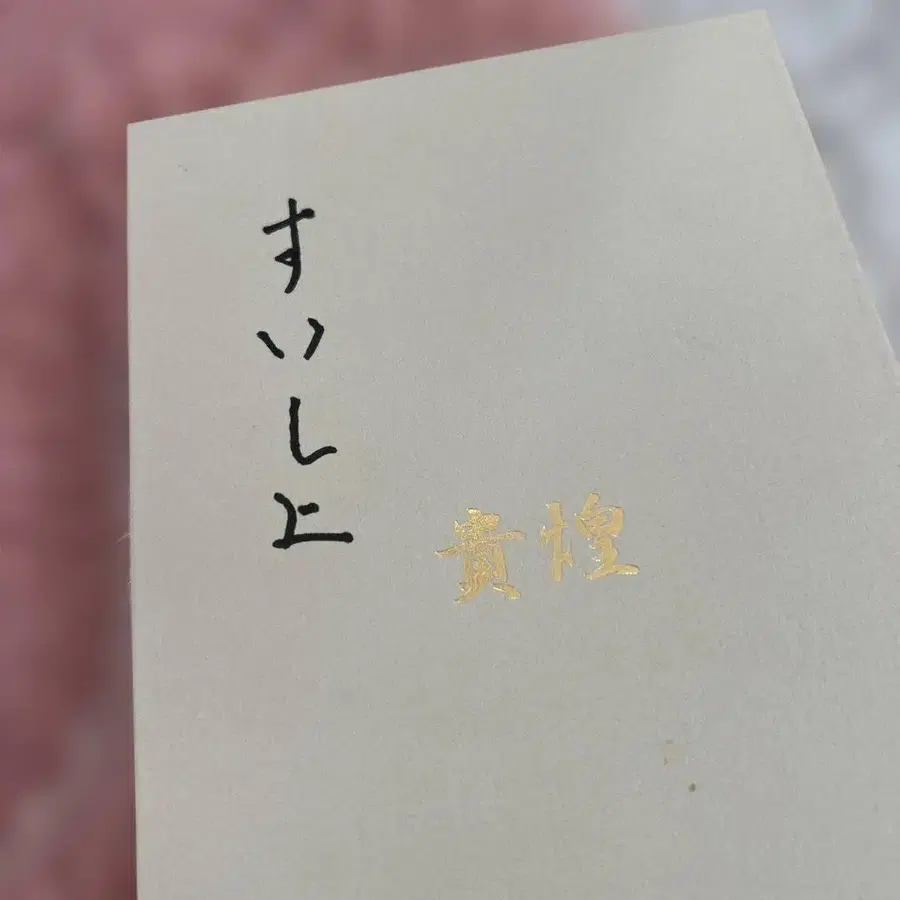 すいし上
貴煌